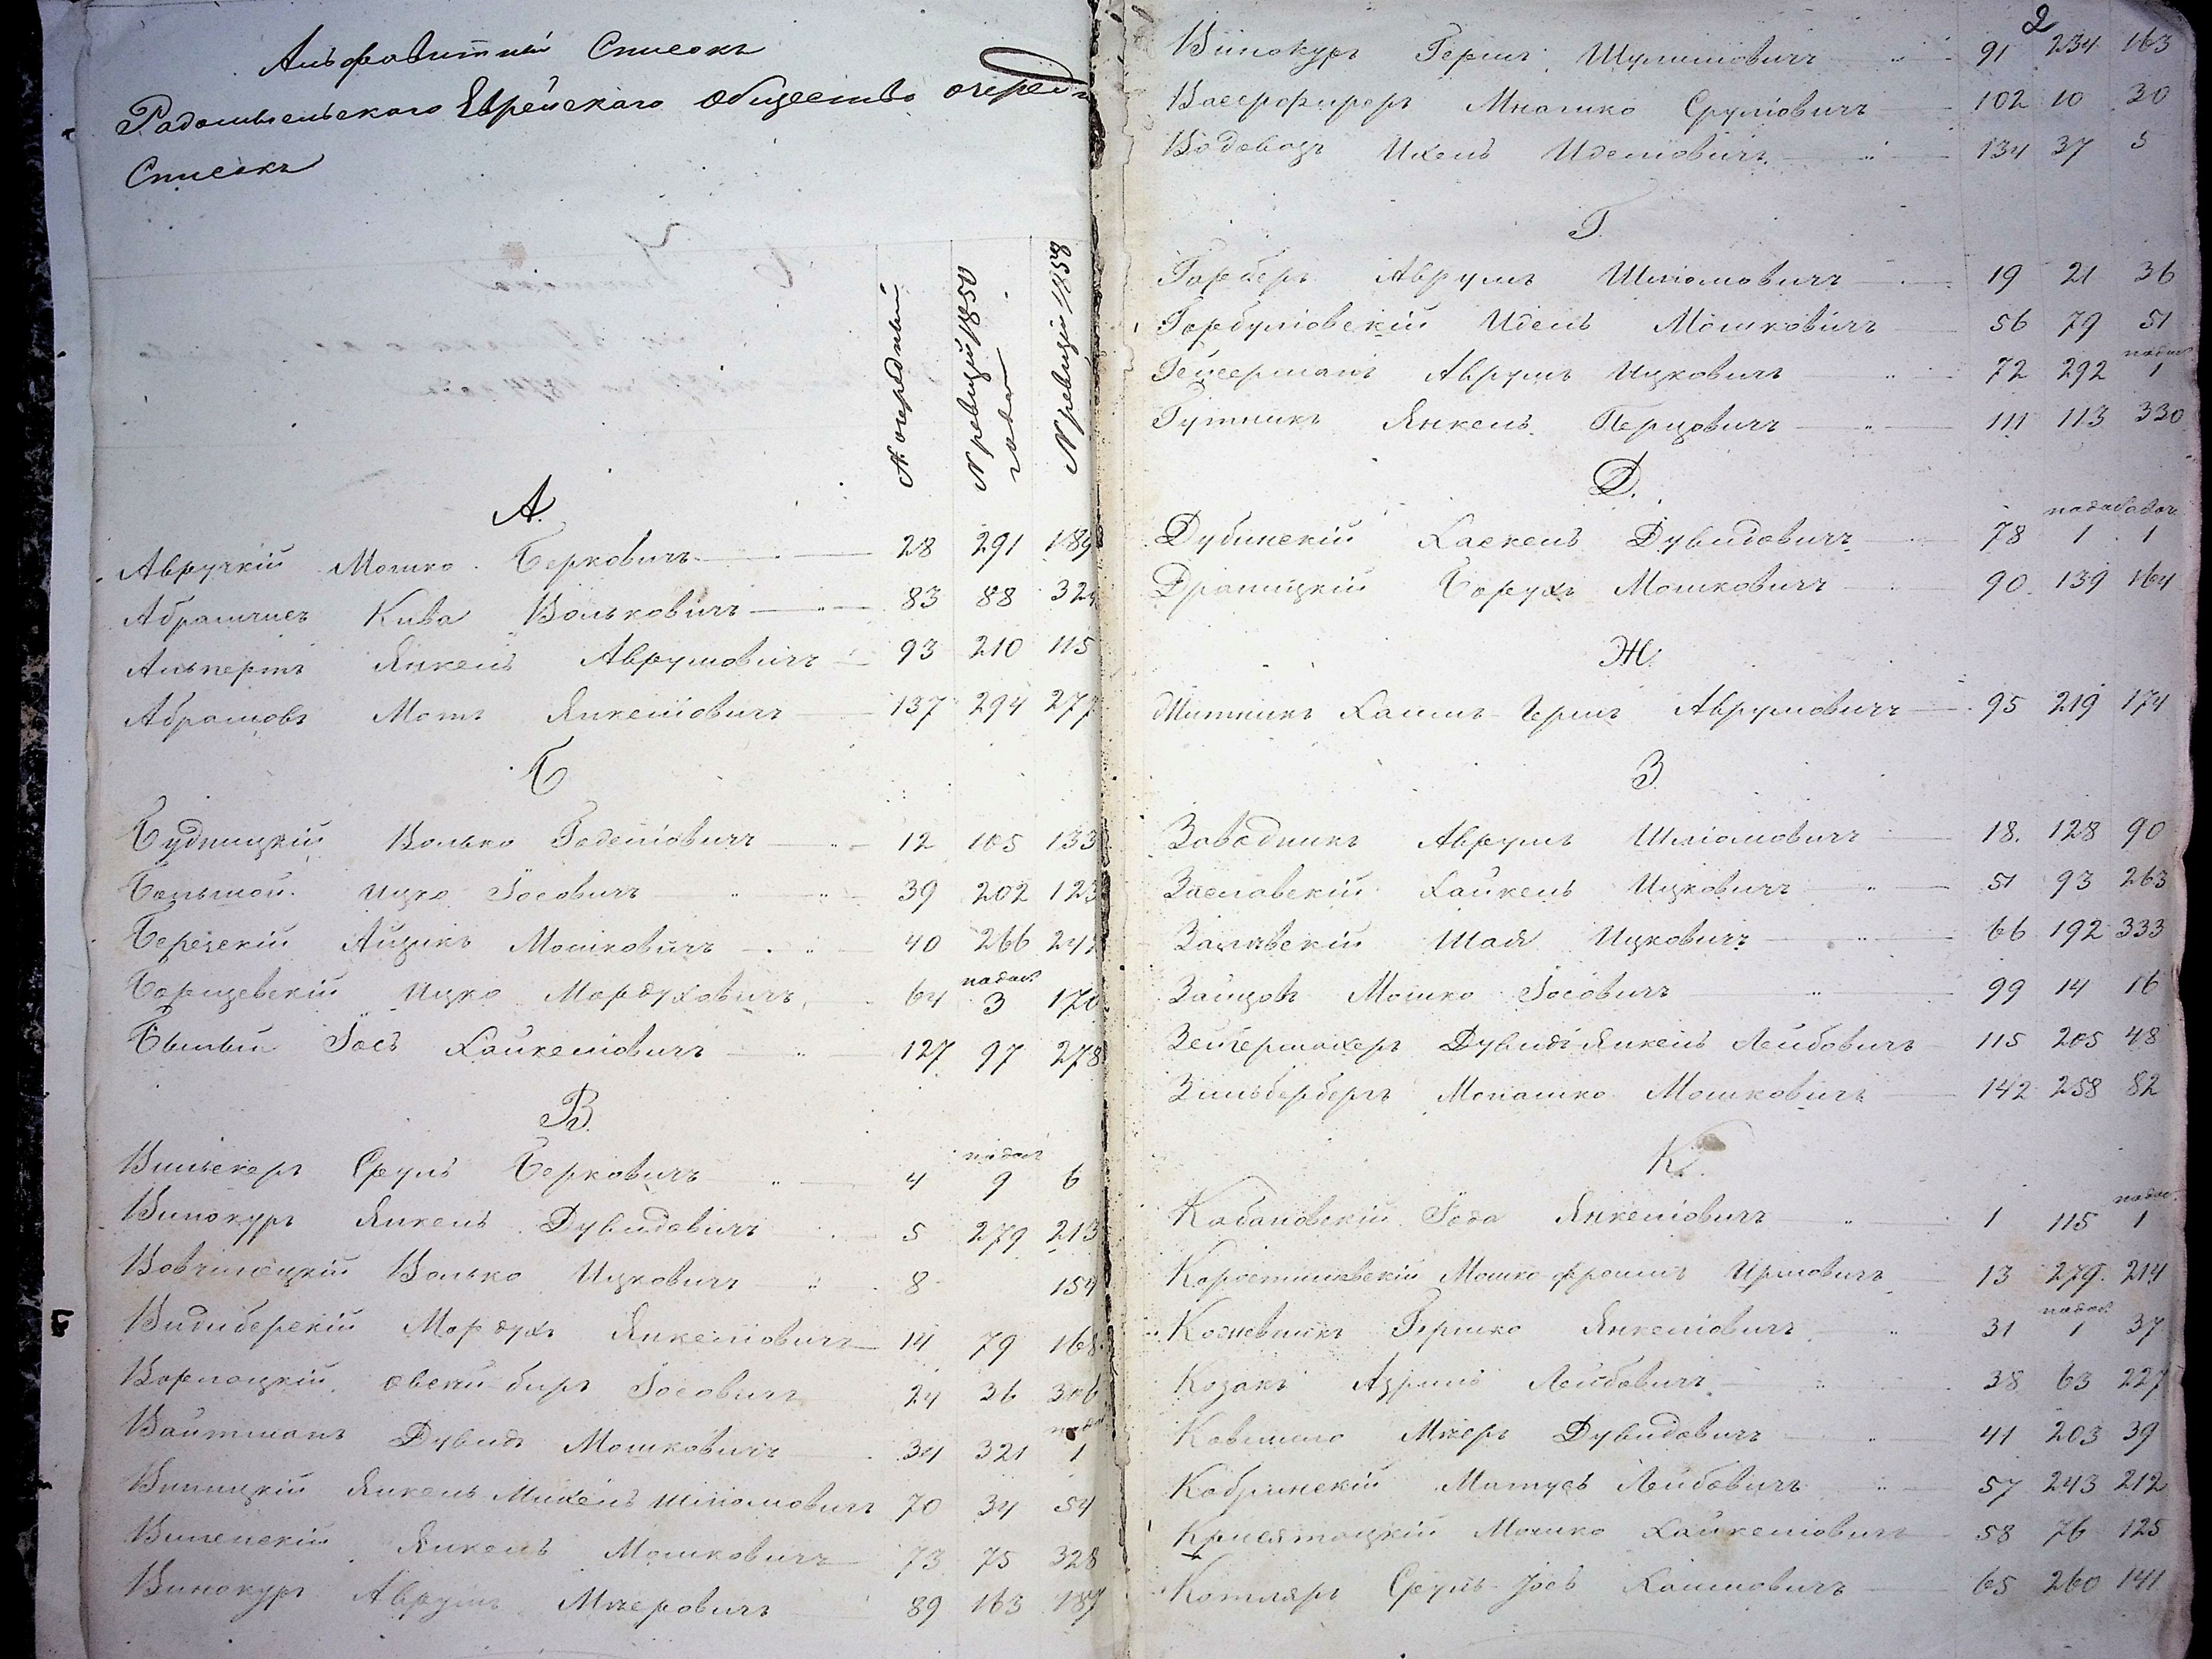 Алфавитный Списокъ
Радомысльскаго Еврейскаго Общества очеред
Списокъ
№ очередный
№ ревизіи 1850 года
№ ревизіи 1858
А.
Авручкій Мошко Берковичъ 28 291 189
Абрамчиев Кива Вольковичъ 83 88 324
Альпертъ Янкель Аврумовичъ 93 210 115
Абрамовъ Мотъ Янкеліовичъ 137 294 277
Б
Будницкій Волько Годеліовичъ 12 105 133
Большой Ицко Іосовичъ 39 202 123
Березскій Айзикъ Мошковичъ 40 266 247
Борщевскій Ицко Мордуховичъ 64 надоб. 3 170
Бѣлый Іось Хайкеліовичъ 127 97 278
В.
Сруль Берковичъ 4 надоб 9 6
Винокуръ Янкель Дувидовичъ 5 279 213
Волько Ицковичъ 8 154
Видиберскій Мордухъ Янкеліовичъ 14 79 168
Іосовичъ 24 36 306
Вайтманъ Дувидъ Мошковичъ 34 321 1
Винницкій Янкель Михель Шліомовичъ 70 34 54
Виленскій Янкель Мошковичъ 73 75 328
Винокуръ Аврумъ Мееровичъ 89 163 189
2
Винокуръ Гершъ Шулимовичъ 91 234 163
Вассерфиреръ Мнашко Сруліовичъ 102 10 30
Водовозъ Ихель Иделіовичъ 134 37 5
Г.
Горберъ Аврумъ Шліомовичъ 19 21 36
Горбулiовскій Идель Мошковичъ 56 79 51
Гейсерманъ Аврумъ Ицковичъ 72 292 надоб 1
Гутникъ Янкель Перцовичъ 111 113 330
Д.
Дубинскій Хаскель Дувидовичъ 78 надоб 1 надоб 1
Драницкій Борухъ Мошковичъ 90 139 164
Ж.
Житникъ Хаимъ-Гершъ Аврумовичъ 95 219 174
З.
Заводникъ Аврумъ Шліомовичъ 18. 128 90
Заславскій Хайкель Ицковичъ 51 93 263
Шая Ицковичъ 66 192 333
Зайцовъ Мошко Іосовичъ 99 14 16
Зейгермахеръ Дувидъ Янкель Лейбовичъ 115 205 48
Зильберберъ Монашко Мошковичъ 142 258 82
К.
Кабановскій Іода Янкеліовичъ 1 115 надоб. 1
Коростишевскій Мошко Фроимъ Ирмовичъ 13 279 214
Кожевникъ Гершко Янкеліовичъ 31 надоб 1 37
Козакъ Азриль Лейбовичъ 38 63 227
Мееръ Дувидовичъ 41 203 39
Кобринскій Матусъ Лейбовичъ 57 243 212
Мошко Хайкеліовичъ 58 76 125
Котляръ Сруль-Іось Хаимовичъ 65 260 141